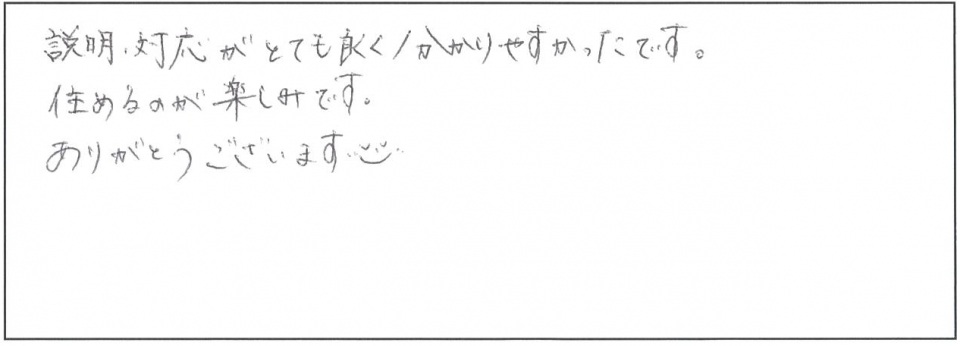 説明・対応がとても良く分かりやすかったです。
住めるのが楽しみです。
ありがとうございます